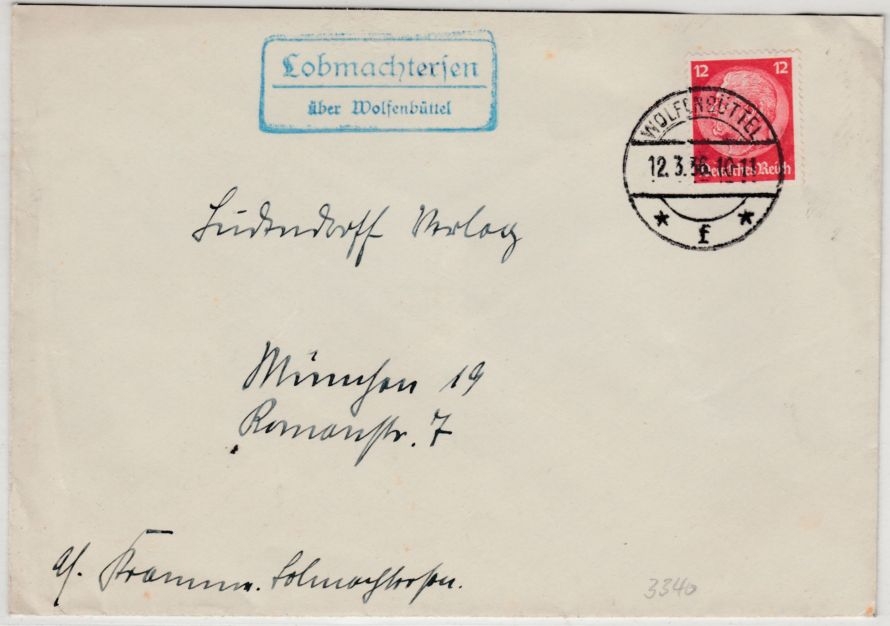 Lobmachtersen
über Wolfenbüttel
12 12
Deutsches Reich
WOLFENBÜTTEL
12.3.36.10-11
* f *
Ludendorff Verlag
München 19
Romanstr. 7
Lobmachtersen.
3340